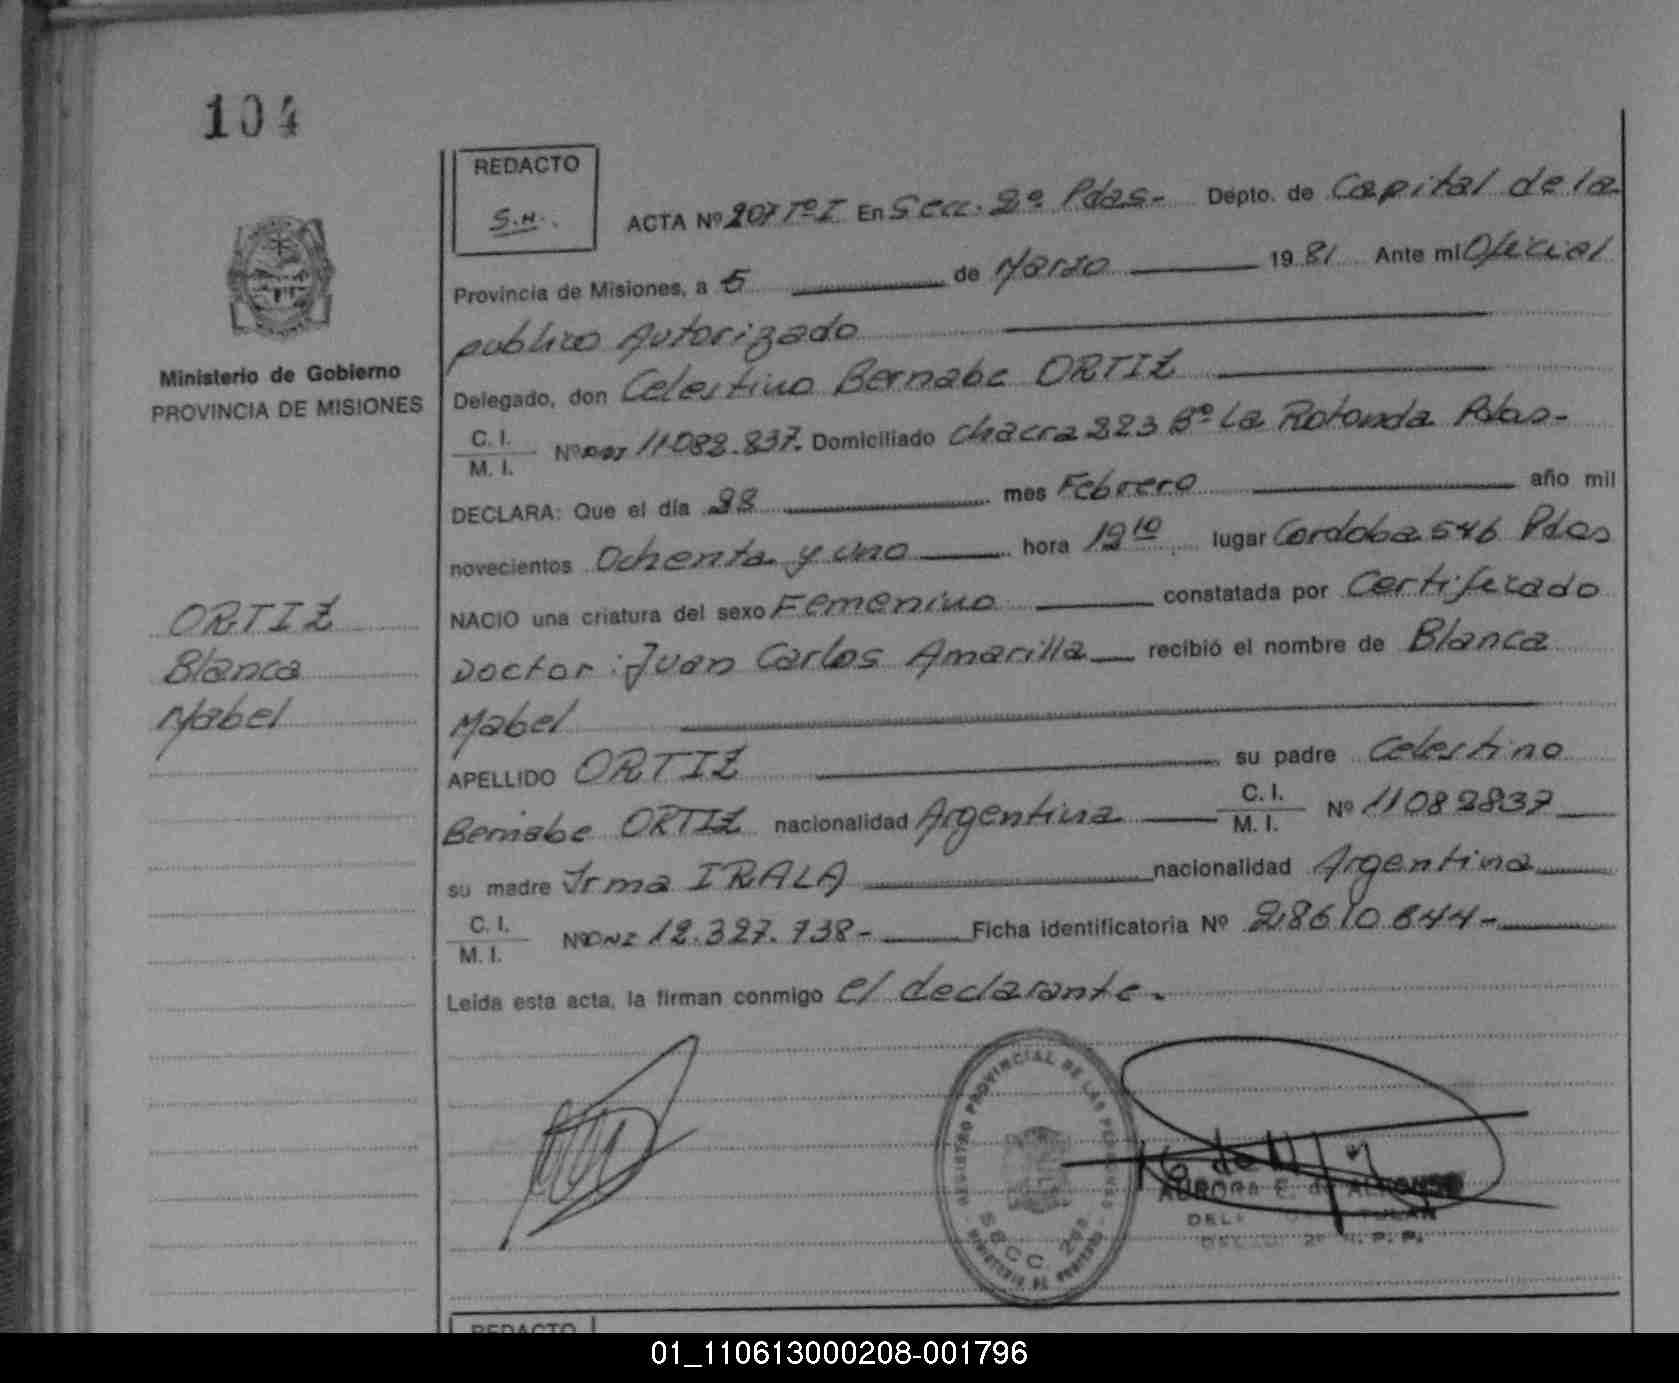 104
REDACTO
S.N.
ACTA Nº 207 Tº I En Secc. 2º Pdas- Depto. de Capital de la
Provincia de Misiones, a 5 de Marzo 1981 Ante mí Oficial
publico Autorizado
Ministerio de Gobierno
PROVINCIA DE MISIONES
Delegado, don Celestino Bernabe ORTIZ
C. I.
M. I.
Nº DNI 11.082.837. Domiciliado chacra 223 Bº La Rotonda Pdas-
DECLARA: Que el día 28 mes Febrero año mil
novecientos Ochenta y uno hora 19 10 lugar Cordoba 546 Pdas
NACIO una criatura del sexo Femenino constatada por Certificado
Doctor: Juan Carlos Amarilla recibió el nombre de Blanca
Mabel
ORTIZ
Blanca
Mabel
APELLIDO ORTIZ su padre Celestino
Bernabe ORTIZ nacionalidad Argentina C. I. M. I. Nº 11082837
su madre Irma IRALA nacionalidad Argentina
C. I.
M. I.
Nº DNI 12.327.738- Ficha identificatoria Nº 28610.844-
Leída esta acta, la firman conmigo el declarante.
REGISTRO PROVINCIAL DE LAS PERSONAS
SECC. 2da
MINISTERIO DE GOBIERNO
AURORA E. de ALFONSO
REDACTO
01_110613000208-001796